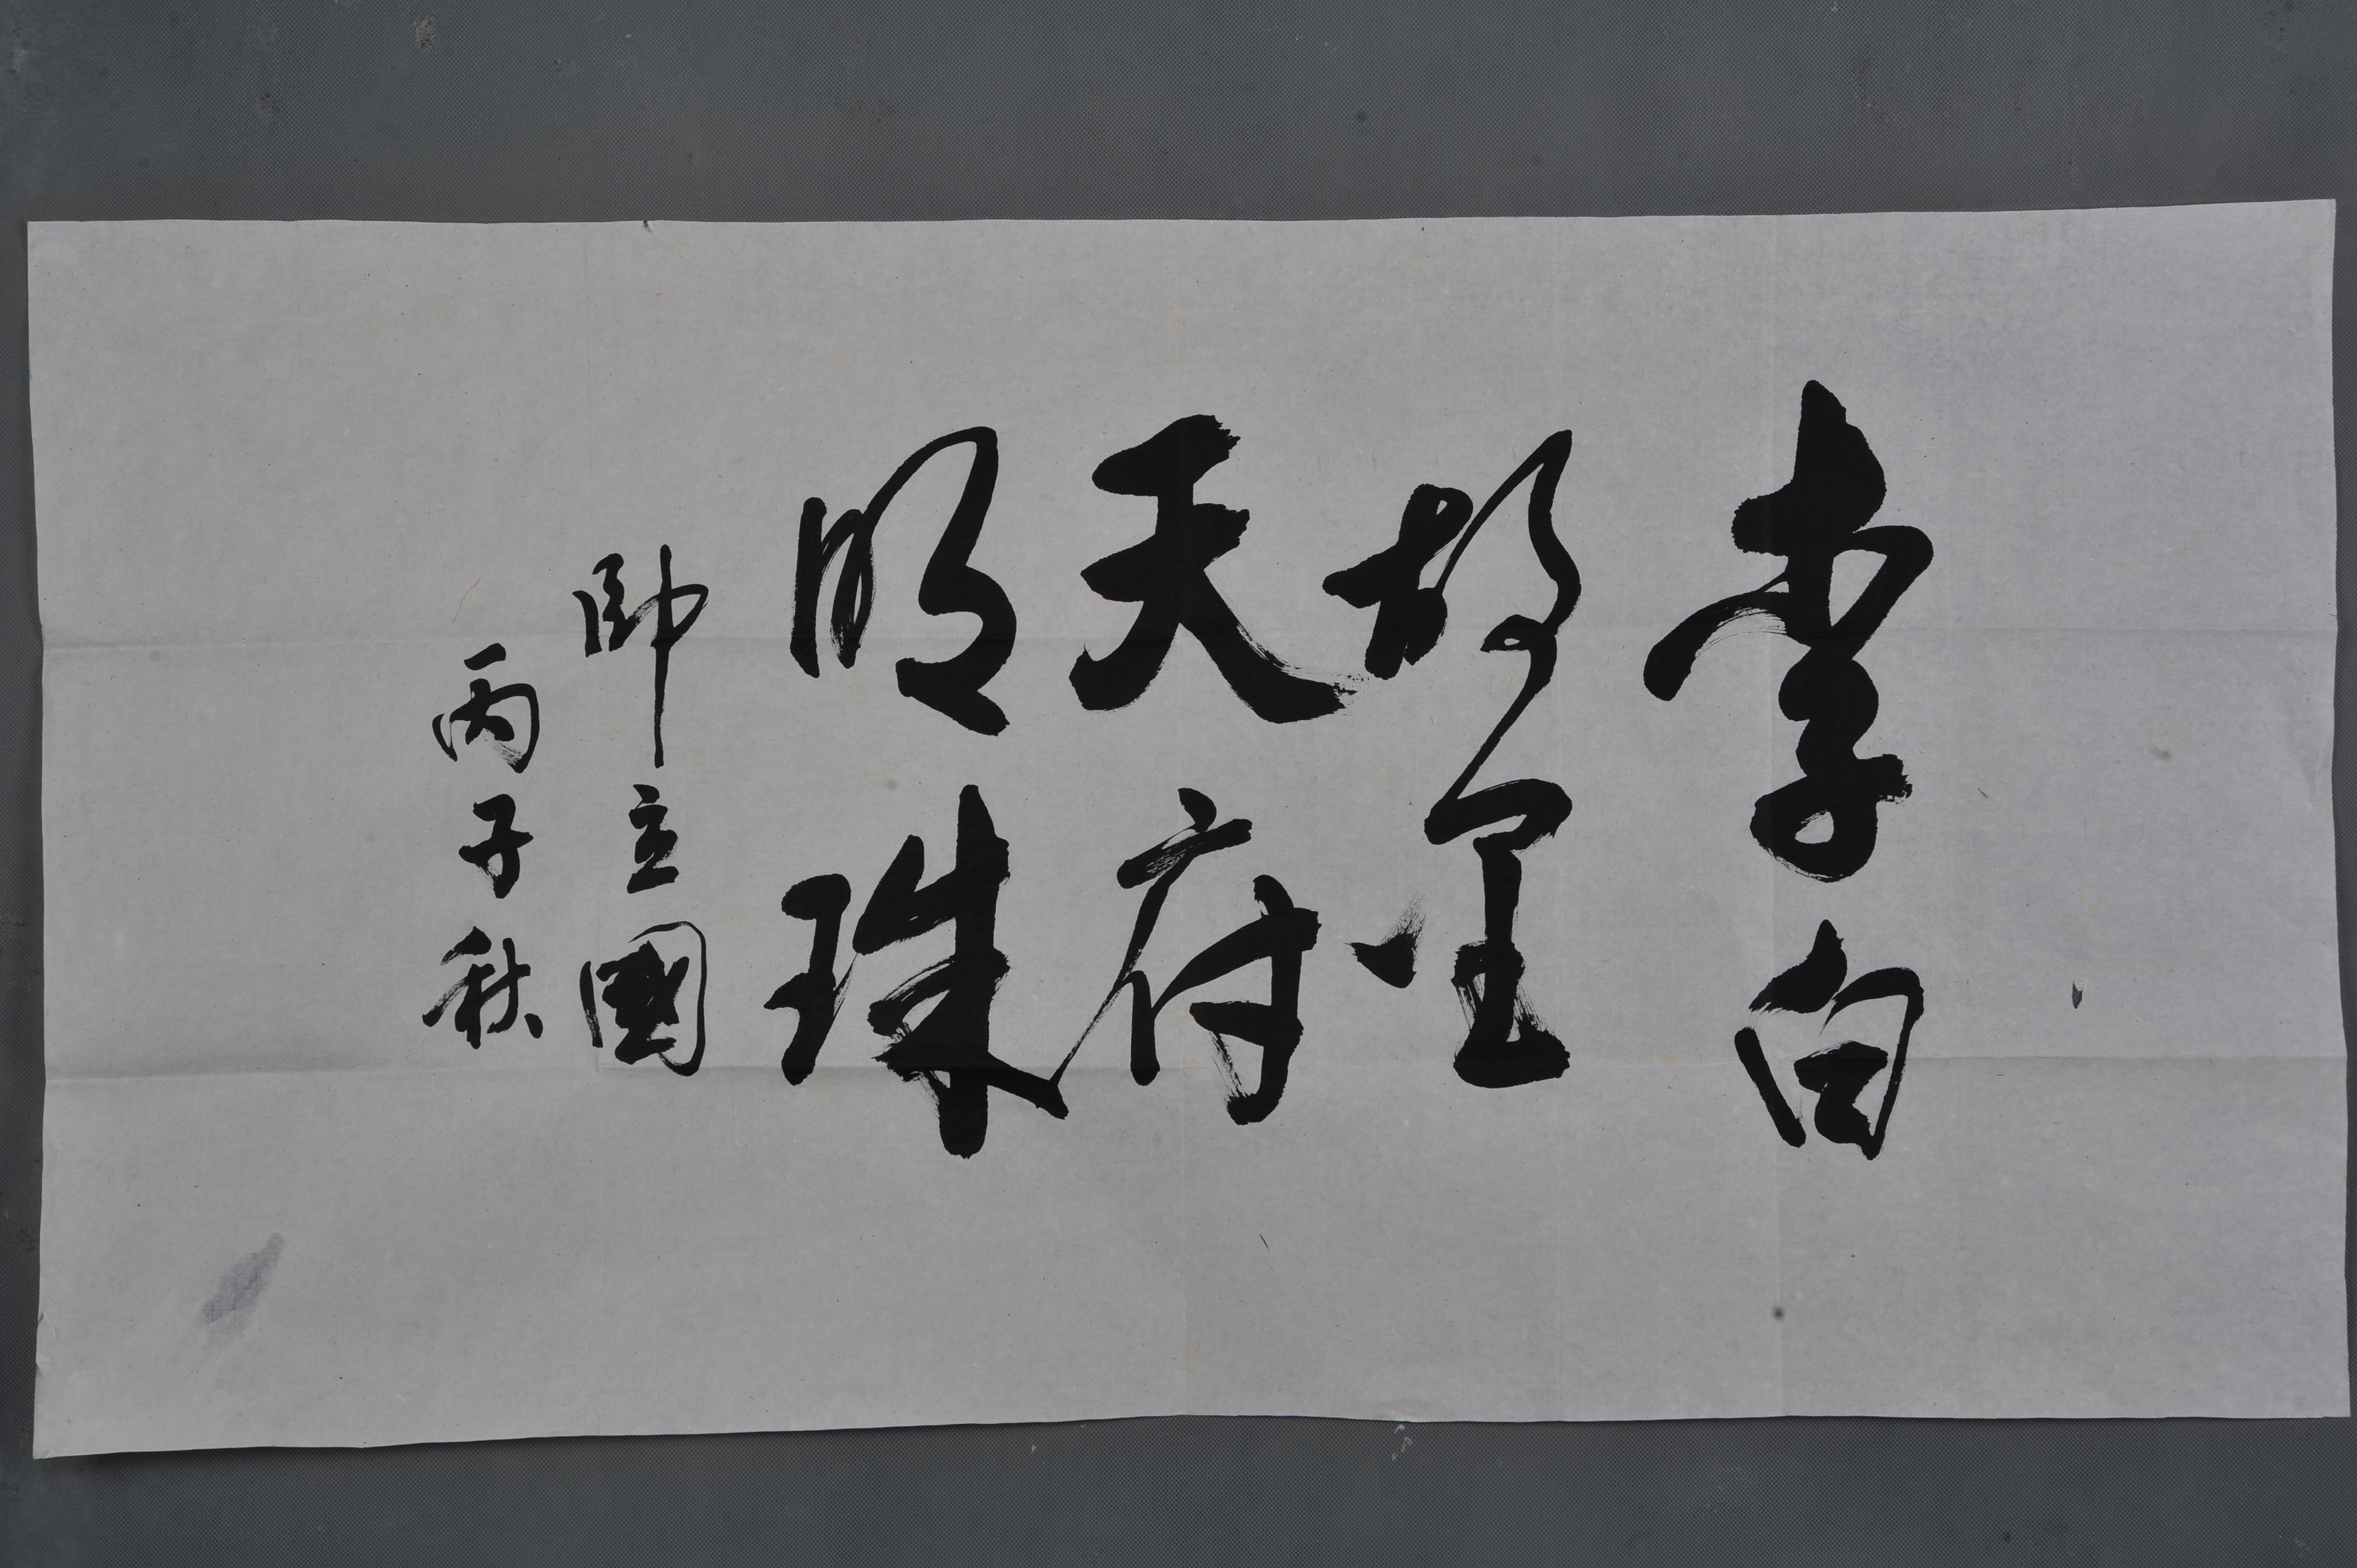 李白
故里
天府
明珠
帥立國
丙子秋